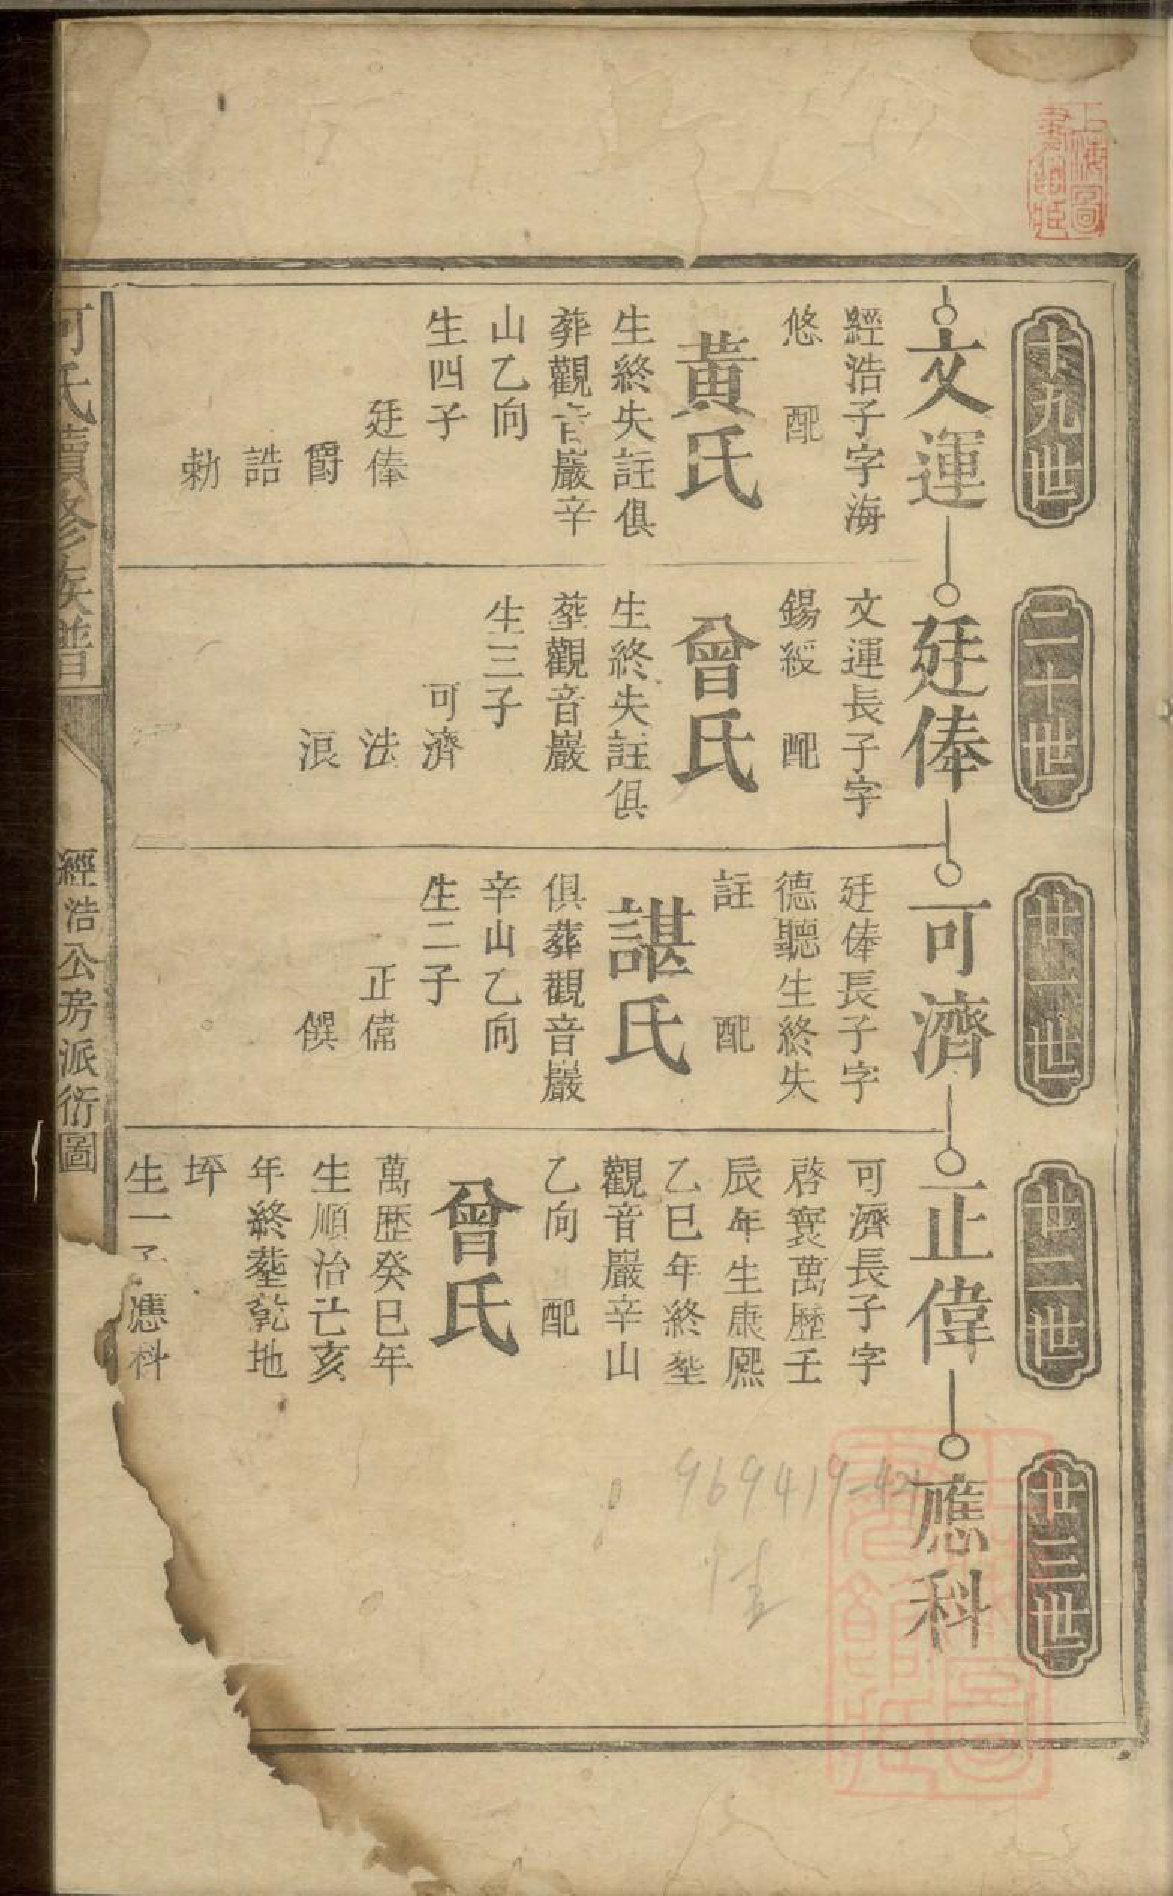 上海圖書館藏
十九世
文運
經浩子字海
悠 配
黃氏
生終失註俱
葬觀音巖辛
山乙向
生四子
廷俸
爵
誥
勅
二十世
廷俸
文運長子字
錫綬 配
曾氏
生終失註俱
塟觀音巖
生三子
可濟
法
浪
廿一世
可濟
廷俸長子字
德聽生終失
註 配
諶氏
俱葬觀音巖
辛山乙向
生二子
正偉
僎
廿二世
正偉
可濟長子字
啓寰萬歷壬
辰年生康熙
乙巳年終塟
觀音巖辛山
乙向 配
曾氏
萬歷癸巳年
生順治亡亥
年終塟乾地
坪
生一子應科
廿三世
應科
969419-42
何氏續修族譜
經浩公房派衍圖